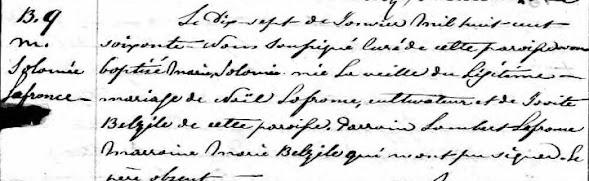 B. 9
m.
Solomée
Lafrance
Le dix-sept de Janvier mil huit cent
soixante Nous soussigné Curé de cette paroisse avons
baptisé Marie, Solomée née la veille du légitime
mariage de Noël Lafrance, cultivateur et de Judite
Belzile de cette paroisse. Parrain Lambert Lafrance
Marraine Marie Belzile qui n'ont pu signer. Le
père absent